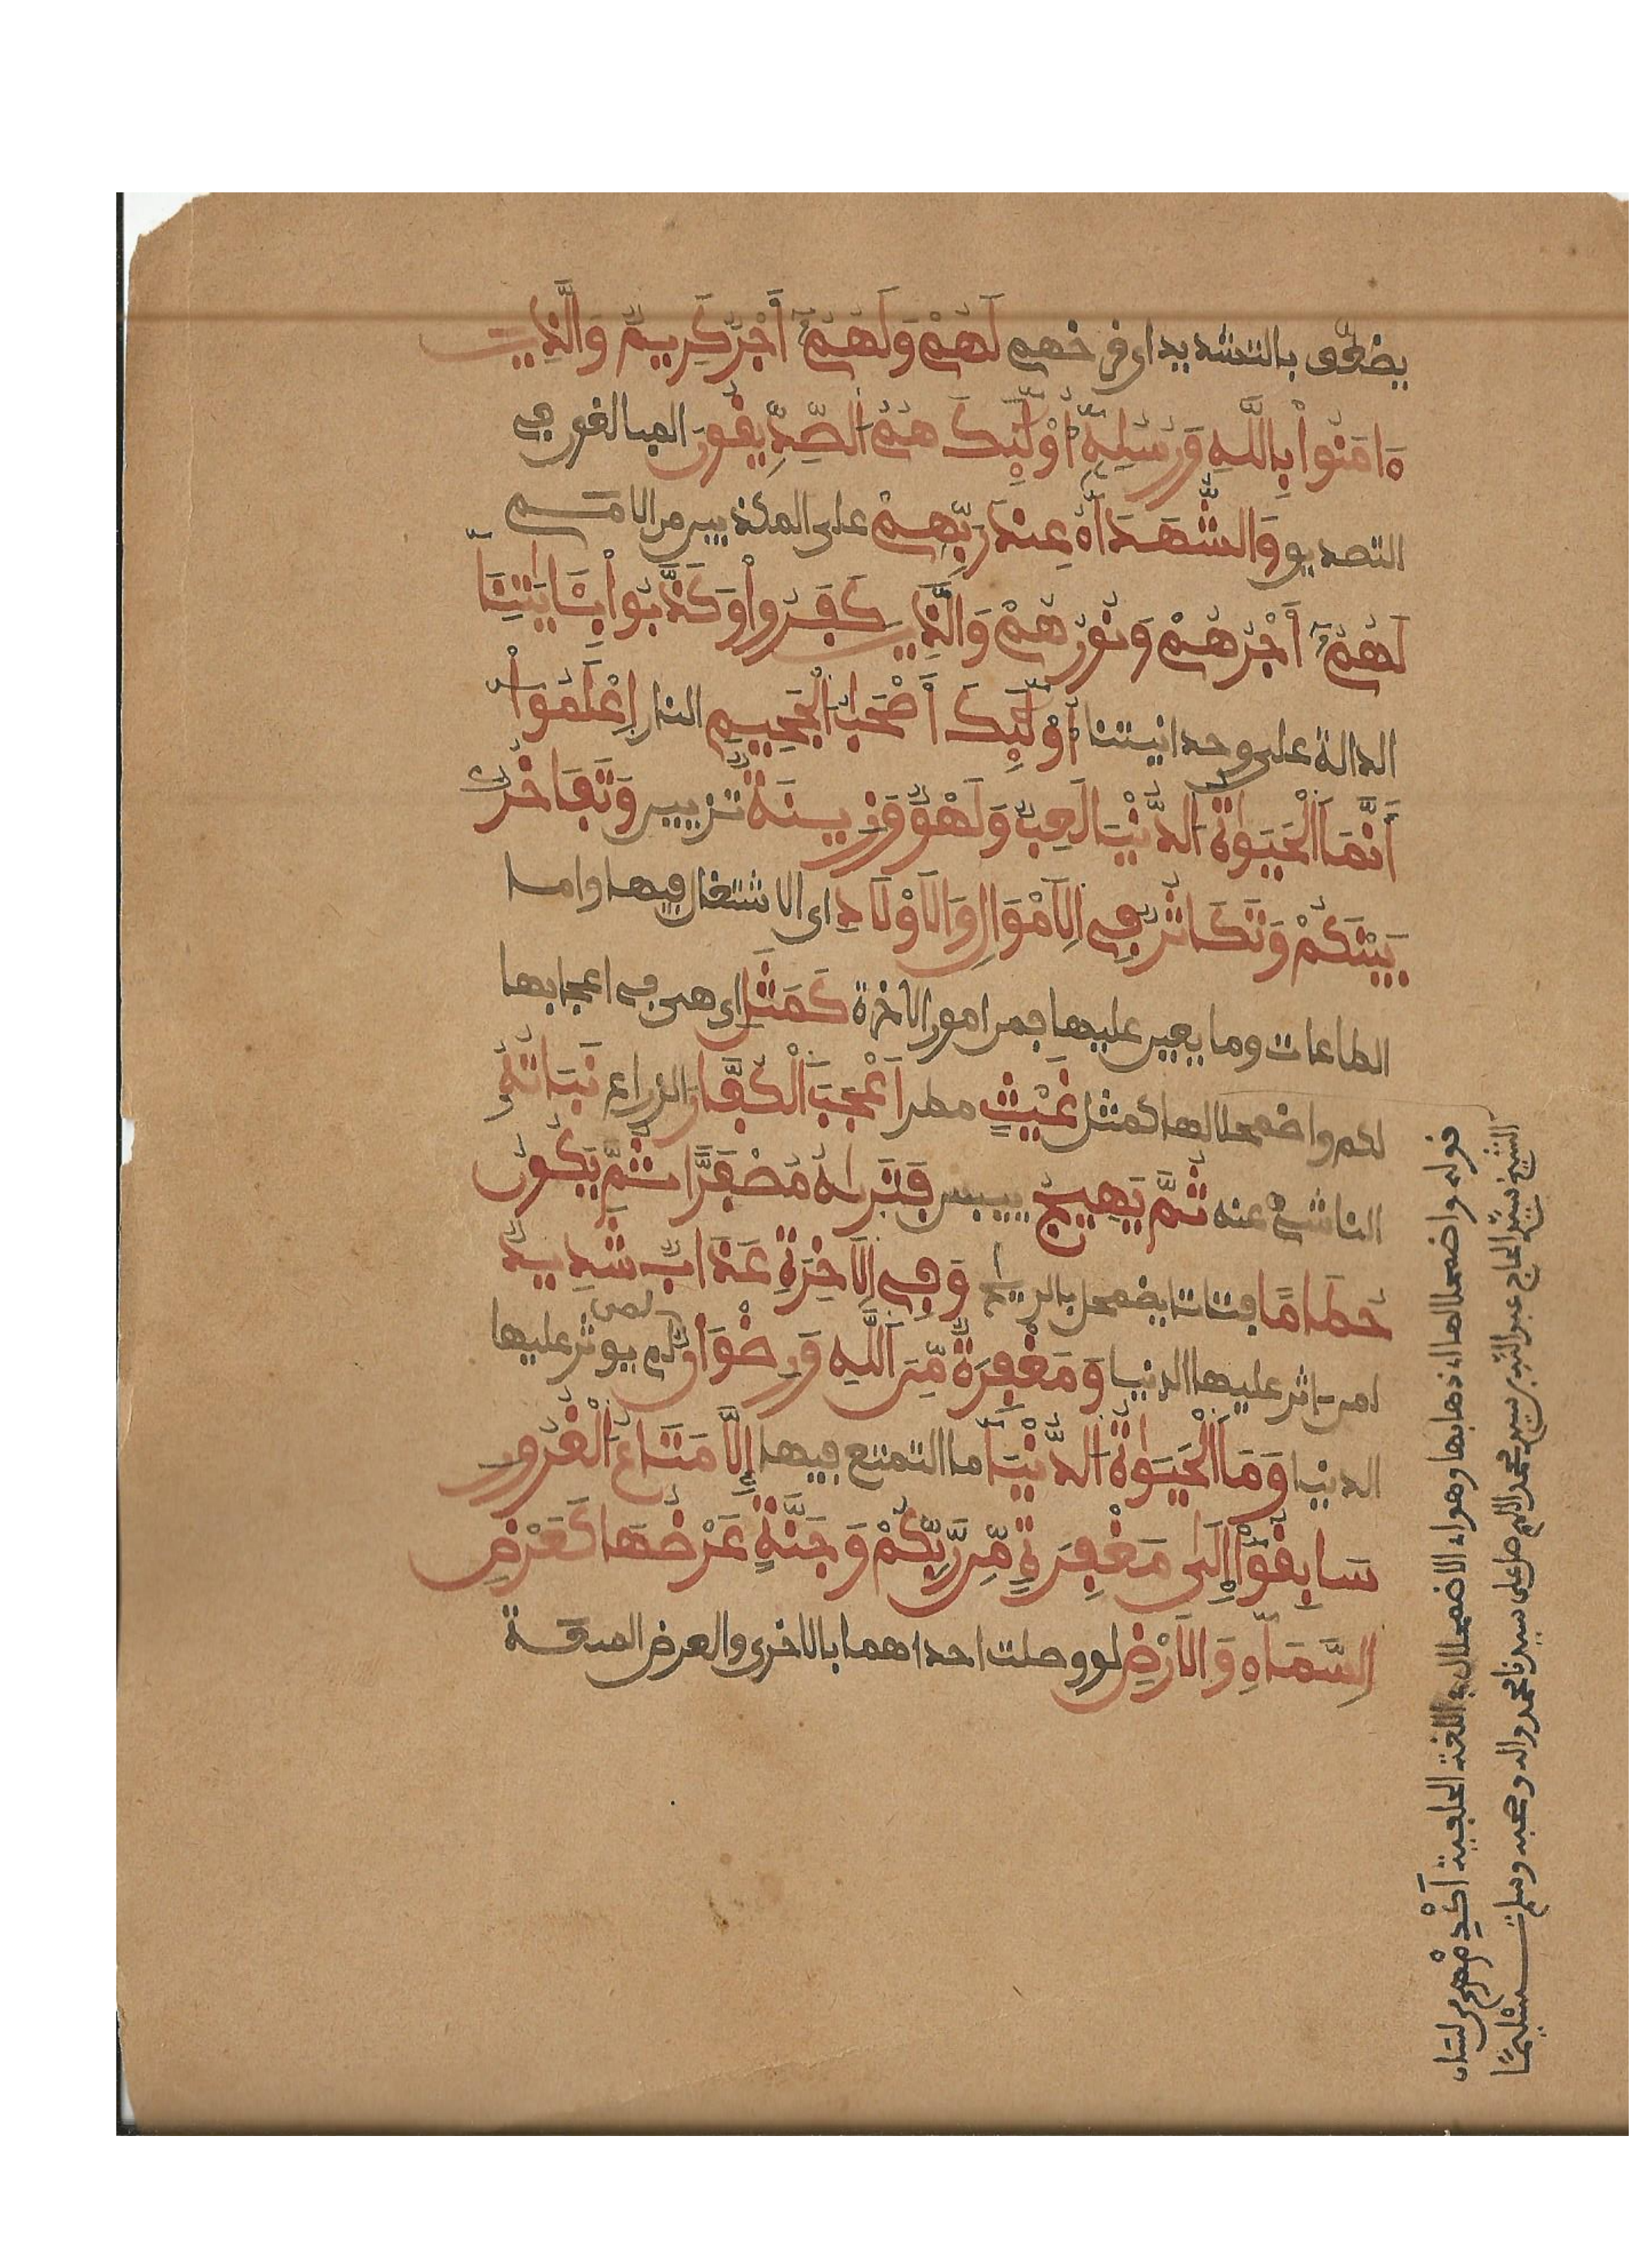 يضعف بالتشديد اى قرضهم لَهُمْ وَلَهُمُ أَجْرٌ كَرِيمٌ وَالَّذِينَ
ءَامَنُواْ بِاللَّهِ وَرُسُلِهِ أُوْلَٰئِكَ هُمُ الصِّدِّيقُونَ المبالغون في
التصديق وَالشُّهَدَآءُ عِندَ رَبِّهِمْ على المكذبين من الامم
لَهُمُ أَجْرُهُمْ وَنُورُهُمْ وَالَّذِينَ كَفَرُواْ وَكَذَّبُواْ بِـَٔايَٰتِنَا
الدالة على وحدانيتنا أُوْلَٰئِكَ أَصْحَٰبُ الْجَحِيمِ النار اِعْلَمُواْ
أَنَّمَا الْحَيَوٰةُ الدُّنْيَا لَعِبٌ وَلَهْوٌ وَزِينَةٌ تزيين وَتَفَاخُرٌ
بَيْنَكُمْ وَتَكَاثُرٌ فِي الَامْوَالِ وَالَاوْلَادِ اى الاشتغال فيها واما
الطاعات وما يعين عليها فمن امور الاخرة كَمَثَلِ اى هى في اعجابها
لكم واضمحلالها كمثل غَيْثٍ مطر اَعْجَبَ الْكُفَّارَ الزراع نَبَاتُهُ
الناشئ عنه ثُمَّ يَهِيجُ ييبس فَتَرَىٰهُ مُصْفَرًّا ثُمَّ يَكُونُ
حُطَامًا فتاتا يضمحل بالريح وَفِي الَاخِرَةِ عَذَابٌ شَدِيدٌ
لمن
لمن اثر عليها الدنيا وَمَغْفِرَةٌ مِّنَ اَللَّهِ وَرِضْوَانٌ لم يوثر عليها
الدنيا وَمَا الْحَيَوٰةُ الدُّنْيَا ما التمتع فيها إِلَّا مَتَاعُ الْغُرُورِ
سَابِقُواْ إِلَىٰ مَغْفِرَةٍ مِّن رَّبِّكُمْ وَجَنَّةٍ عَرْضُهَا كَعَرْضِ
السَّمَآءِ وَالَارْضِ لو وصلت احداهما بالاخرى والعرض السعة
قوله واضمحلالها اى ذهابها وهو اى الاضمحلال في اللغة من لسان
الشيخ سيد الحاج عبد الله بن سيد محمد اللهم صل على سيدنا محمد واله وصحبه وسلم تسليما